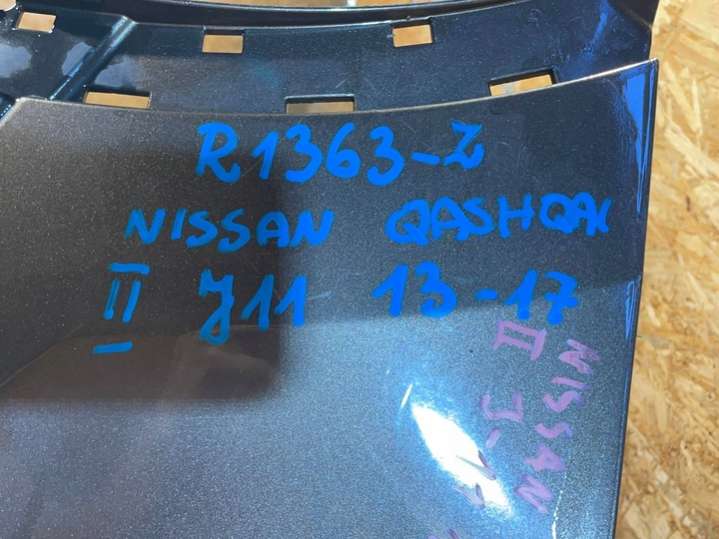 R1363-Z
NISSAN QASHQAI
II J11 13-17
NISSAN
II J-11